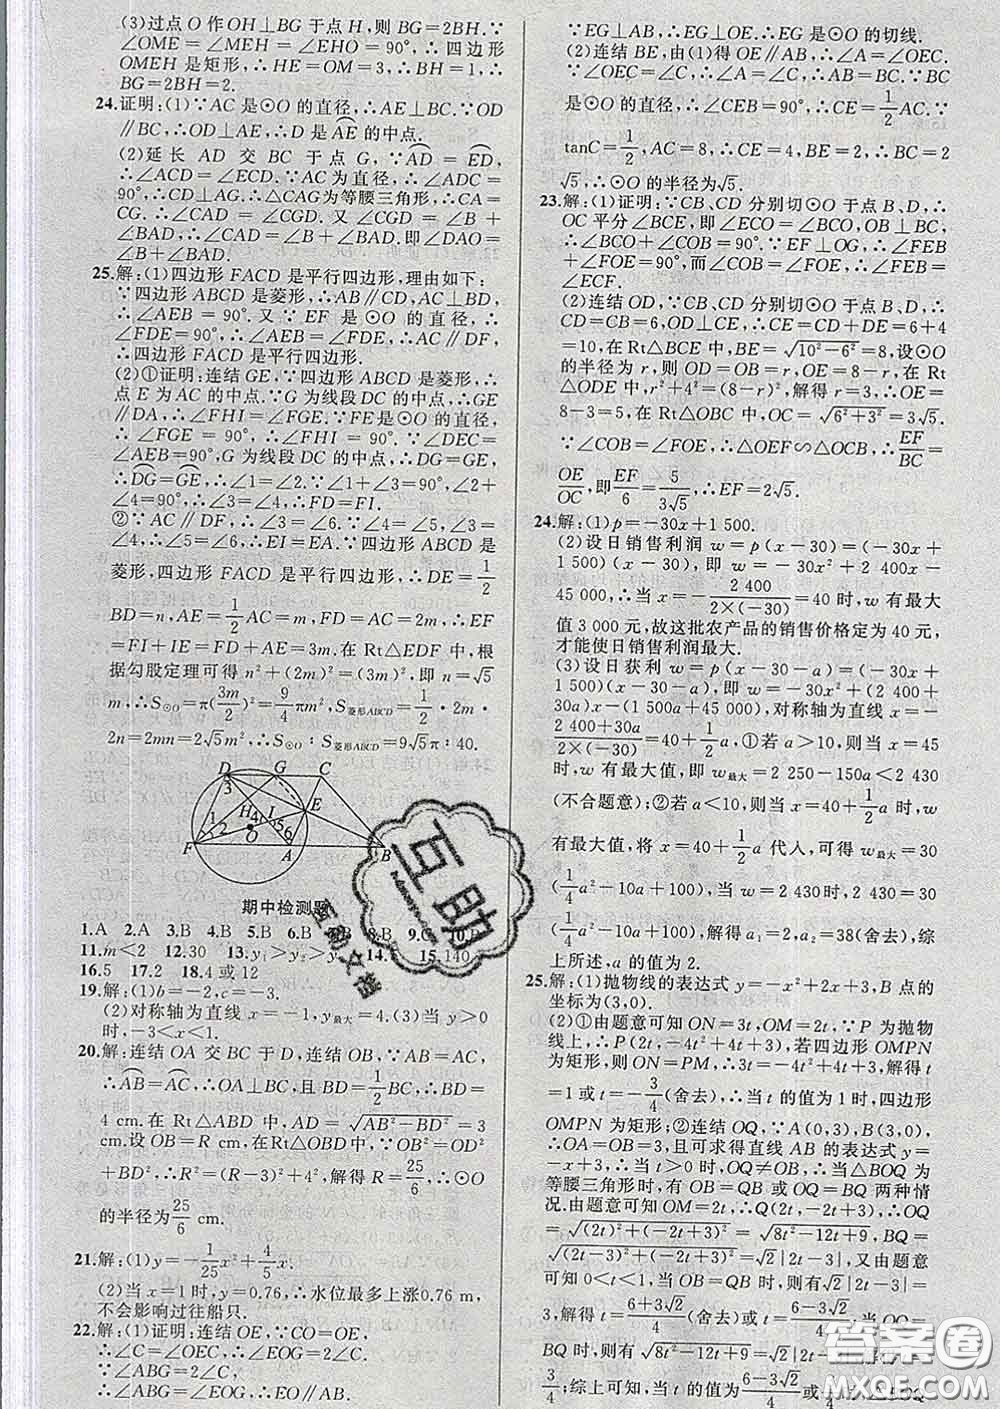 (3)过点 O 作 OH⊥BG 于点 H,则 BG=2BH.∵
∠OME=∠MEH=∠EHO=90°,∴四边形
OMEH 是矩形,∴HE=OM=3,∴BH=1,∴
BG=2BH=2.
24.证明:(1)∵AC 是⊙O 的直径,∴AE⊥BC.∵OD
∥BC,∴OD⊥AE,∴D 是AE的中点.
(2)延长 AD 交 BC 于点 G,∵AD=ED,
∴∠ACD=∠ECD.∵AC为直径,∴∠ADC=
90°,∴CD⊥AG.∴△CAG为等腰三角形,∴CA=
CG.∴∠CAD=∠CGD.又∠CGD=∠B+
∠BAD,∴∠CAD=∠B+∠BAD.即∠DAO=
∠B+∠BAD.
25.解:(1)四边形 FACD 是平行四边形,理由如下:
∵四边形 ABCD 是菱形,∴AB∥CD,AC⊥BD,
∴∠AEB=90°.又∵EF 是⊙O 的直径,∴
∠FDE=90°,∴∠AEB=∠FDE,∴AC∥DF,
∴四边形 FACD 是平行四边形.
(2)①证明:连结 GE,∵四边形 ABCD 是菱形,∴
点 E 为 AC 的中点.∵G 为线段 DC 的中点,∴GE
∥DA,∴∠FHI=∠FGE.∵FE是⊙O 的直径,
∴∠FGE=90°,∴∠FHI=90°.∵∠DEC=
∠AEB=90°,G 为线段 DC 的中点,∴DG=GE,
∴DG=GE,∴∠1=∠2.∵∠1+∠3=90°,∠2+
∠4=90°,∴∠3=∠4,∴FD=FI.
②∵AC∥DF,∴∠3=∠6.∵∠4=∠5,∠3=
∠4,∴∠5=∠6,∴EI=EA.∵四边形 ABCD 是
菱形,四边形 FACD 是平行四边形,∴DE=1/2
BD=n,AE=1/2AC=m,FD=AC=2m,∴EF
=FI+IE=FD+AE=3m.在Rt△EDF 中,根
据勾股定理可得 n²+(2m)²=(3m)²,即 n=√5
m,∴S⊙O=π(3m/2)²=9/4πm²,S菱形ABCD=1/2·2m·
2n=2mn=2√5m²,∴S⊙O:S菱形ABCD=9√5π:40.
D G C
3 H 4 I E
1 2 O 5 6
F A B
期中检测题
1.A 2.A 3.B 4.B 5.B 6.B 8.B
11.m<2 12.30 13.y₁>y₂> 15.140
16.5 17.2 18.4 或 12
19.解:(1)b=-2,c=-3.
(2)对称轴为直线 x=-1,y最大=4.(3)当 y>0
时,-3<x<1.
20.解:连结 OA 交 BC 于 D,连结 OB,∵AB=AC,
∴AB=AC,∴OA⊥BC,且BD=1/2BC,∴BD=
4 cm.在 Rt△ABD 中,AD=√(AB²-BD²)=3
cm.设 OB=R cm,在Rt△OBD 中,OB²=OD²
+BD²,∴R²=(R-3)²+4²,解得R=25/6,∴⊙O
的半径为25/6 cm.
21.解:(1)y=-1/25x²+4/5x.
(2)当 x=1 时,y=0.76,∴水位最多上涨0.76 m,
不会影响过往船只.
22.解:(1)证明:连结 OE,∵CO=OE,
∴∠C=∠OEC,∴∠EOG=2∠C.
∵∠ABG=2∠C,
∴∠ABG=∠EOG,∴OE∥AB.
∵EG⊥AB,∴EG⊥OE.∴EG 是⊙O 的切线.
(2)连结 BE,由(1)得 OE∥AB,∴∠A=∠OEC.
∵∠OEC=∠C,∴∠A=∠C,∴AB=BC.∵BC
是⊙O 的直径,∴∠CEB=90°,∴CE=1/2AC.∵
tanC=1/2,AC=8,∴CE=4,BE=2,BC=2
√5,∴⊙O 的半径为√5.
23.解:(1)证明:∵CB、CD 分别切⊙O 于点 B、D,∴
OC 平分∠BCE,即∠ECO=∠BCO,OB⊥BC,
∴∠BCO+∠COB=90°.∵EF⊥OG,∴∠FEB
+∠FOE=90°.而∠COB=∠FOE,∴∠FEB=
∠ECF.
(2)连结 OD,∵CB、CD 分别切⊙O 于点 B、D,∴
CD=CB=6,OD⊥CE,∴CE=CD+DE=6+4
=10,在 Rt△BCE 中,BE=√(10²-6²)=8,设⊙O
的半径为 r,则 OD=OB=r,OE=8-r,在Rt
△ODE 中,r²+4²=(8-r)²,解得 r=3,∴OE=
8-3=5,在 Rt△OBC 中,OC=√(6²+3²)=3√5.
∵∠COB=∠FOE,∴△OEF∽△OCB,∴EF/BC=
OE/OC,即EF/6=5/(3√5),∴EF=2√5.
24.解:(1)p=-30x+1 500.
(2)设日销售利润 w=p(x-30)=(-30x+
1 500)(x-30),即 w=-30x²+2 400x-
45 000,∴当 x=-2 400/(2×(-30))=40 时,w 有最大
值 3 000 元,故这批农产品的销售价格定为 40 元,
才能使日销售利润最大.
(3)设日获利 w=p(x-30-a)=(-30x+
1 500)(x-30-a),即 w=-30x²+(2 400+
30a)x-(1 500a+45 000),对称轴为直线 x=
-(2 400+30a)/(2×(-30))=40+1/2a,①若 a>10,则当 x=45
时,w 有最大值,即 w最大=2 250-150a<2 430
(不合题意);②若 a<10,则当 x=40+1/2a 时,w
有最大值,将 x=40+1/2a 代入,可得 w最大=30
(1/4a²-10a+100),当 w=2 430 时,2 430=30
(1/4a²-10a+100),解得 a₁=2,a₂=38(舍去),综
上所述,a 的值为 2.
25.解:(1)抛物线的表达式 y=-x²+2x+3,B 点的
坐标为(3,0).
(2)①由题意可知 ON=3t,OM=2t,∵P 为抛物
线上,∴P(2t,-4t²+4t+3),若四边形 OMPN
为矩形,则 ON=PM,∴3t=-4t²+4t+3,解得 t
=1 或 t=-3/4(舍去),∴当 t 的值为 1 时,四边形
OMPN 为矩形;②连结 OQ,∵A(0,3),B(3,0),
∴OA=OB=3,且可求得直线 AB 的表达式 y=
-x+3,∴当 t>0 时,OQ≠OB,∴当△BOQ 为
等腰三角形时,有 OB=QB 或 OQ=BQ 两种情
况.由题意可知 OM=2t,∴Q(2t,-2t+3),∴OQ
=√((2t)²+(-2t+3)²)=√(8t²-12t+9),BQ=
√((2t-3)²+(-2t+3)²)=√2|2t-3|,又由题意
可知 0<t<1,当 OB=QB 时,则有√2|2t-3|=
3,解得 t=(6+3√2)/4(舍去)或 t=(6-3√2)/4,当 OQ=
BQ 时,则有√(8t²-12t+9)=√2|2t-3|,解得 t=
3/4;综上可知,当 t 的值为(6-3√2)/4或
互助
互助文档
答案圈